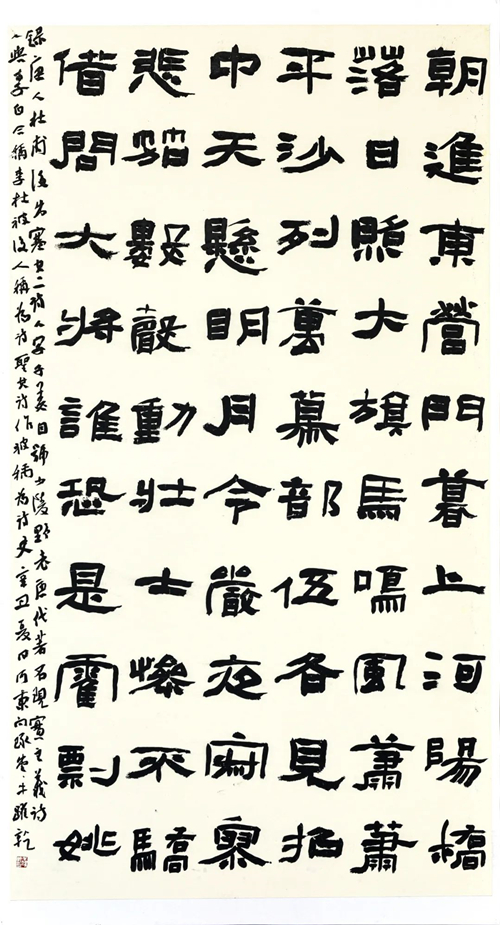 朝進東營門暮上河陽橋
落日照大旗馬鳴風蕭蕭
平沙列萬幕部伍各見招
中天懸明月令嚴夜寂寥
悲笳數聲動壯士慘不驕
借問大將誰恐是霍剽姚
錄唐人杜甫後出塞其二詩人字子美自號少陵野老唐代著名現實主義詩
人與李白合稱李杜被後人稱為詩聖其詩作被稱為詩史辛丑夏日河東